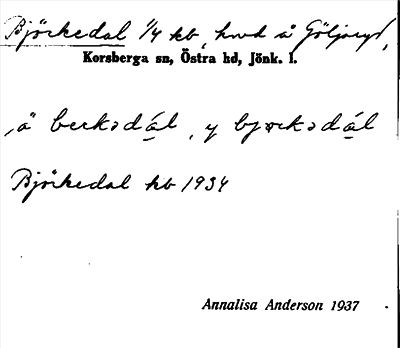 Björkedal 1/4 kb, hmd å Göljaryd,
Korsberga sn, Östra hd, Jönk. l.
,ä berkədál , y bjərkədál
Björkedal kb 1934
Annalisa Anderson 1937